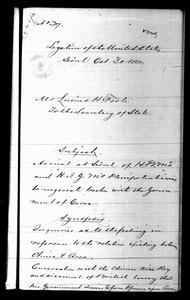 No 34.
Legation of the United States,
Seoul Oct 30
Mr Lucius H. Foote
To the Secretary of State.
Subject
Arrival at Seoul of H.B.M's
and H.I.G.M's Plenipotentiaries
to negotiate treaties with the Govern-
ment of Corea.
Synopsis
Inquiries as to the feeling in
reference to the relation existing between
China & Corea.
Conversation with the Chinese
and of British
his Government upon Corea